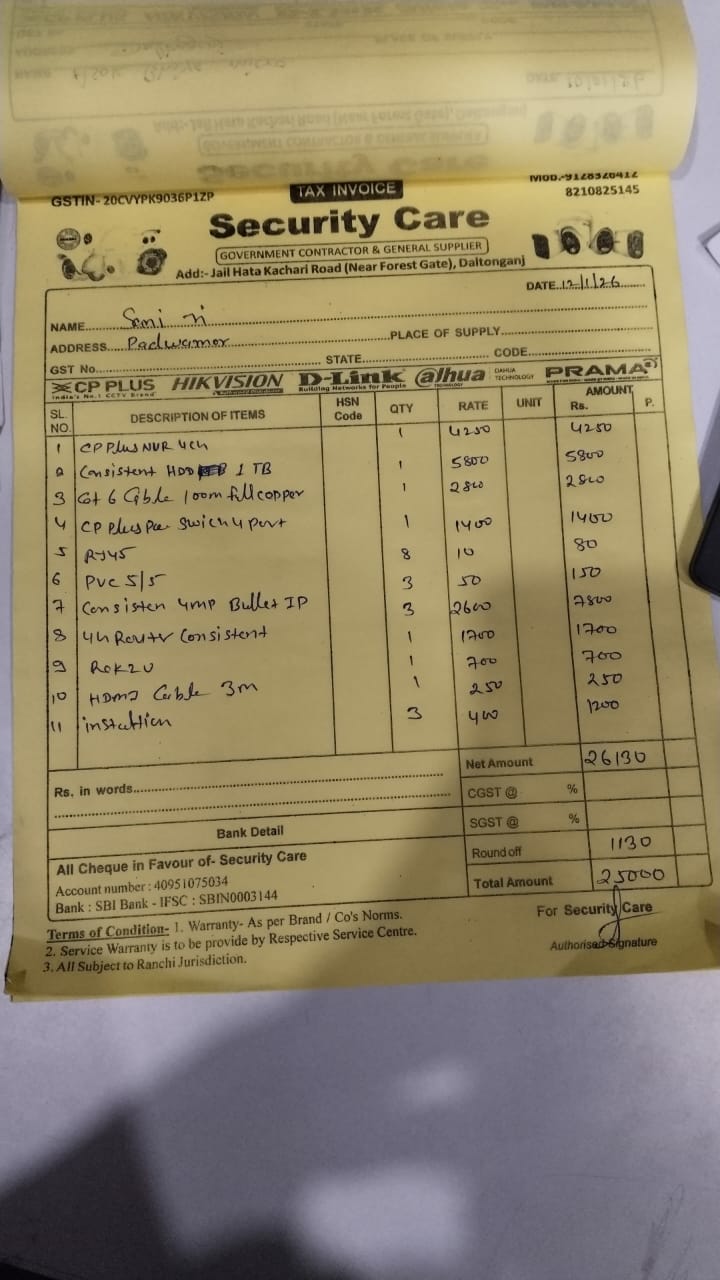 GSTIN- 20CVYPK9036P1ZP
TAX INVOICE
MOB.-9128326412
8210825145
Security Care
GOVERNMENT CONTRACTOR & GENERAL SUPPLIER
Add:- Jail Hata Kachari Road (Near Forest Gate), Daltonganj
DATE. 12/1/26
NAME. Soni Ji
ADDRESS. Padwamor PLACE OF SUPPLY.
GST No. STATE. CODE.
CP PLUS HIKVISION D-Link alhua DAHUA TECHNOLOGY PRAMA
India's No.1 CCTV Brand Building Networks for People TECHNOLOGY
SL. NO. DESCRIPTION OF ITEMS HSN Code QTY RATE UNIT AMOUNT Rs. P.
1 CP Plus NVR 4ch 1 4250 4250
2 Consistent HDD 1 TB 1 5800 5800
3 Cat 6 Cable 100m full copper 1 2800 2800
4 CP Plus Poe Swich 4 port 1 1400 1400
5 RJ45 8 10 80
6 PVC 5/5 3 50 150
7 Consisten 4MP Bullet IP 3 2600 7800
8 4G Router Consistent 1 1700 1700
9 Rek2U 1 700 700
10 HDMI Cable 3m 1 250 250
11 3 400 1200
Net Amount 26130
Rs. in words.
CGST @ %
SGST @ %
Bank Detail
Round off 1130
All Cheque in Favour of- Security Care
Total Amount 25000
Account number : 40951075034
Bank : SBI Bank - IFSC : SBIN0003144
Terms of Condition- 1. Warranty- As per Brand / Co's Norms.
2. Service Warranty is to be provide by Respective Service Centre.
3. All Subject to Ranchi Jurisdiction.
For Security Care
Authorised Signature